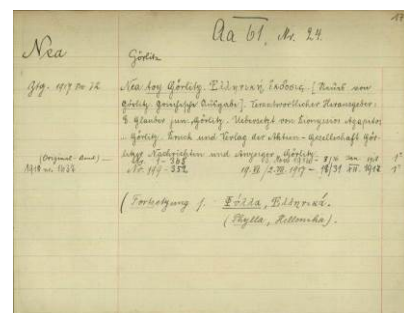 17
Aa 61, Nr. 24.
Nea
Görlitz
Ztg. 1917 Nr 72
Nea tou Görlitz. Ἑλληνικὴ ἔκδοσις. [Neues von
Görlitz. Griechische Ausgabe]. Verantwortlicher Herausgeber:
E. Glauber jun. Görlitz. Uebersetzt von Lionysios Agapitos
... Görlitz. Druck und Verlag der Aktien-Gesellschaft Gör-
litzer Nachrichten und Anzeiger, Görlitz.
(Original-Band)
Nr. 1-
Nr. 199-352
1918
(Fortsetzung s. Φύλλα, Ἑλληνικά.
(Phylla, Hellenika).